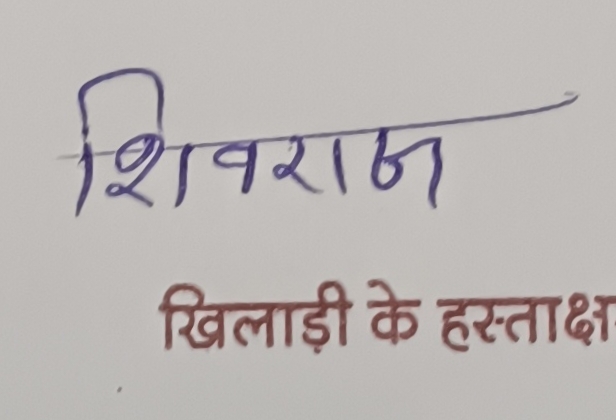 शिवराज
खिलाड़ी के हस्ताक्ष